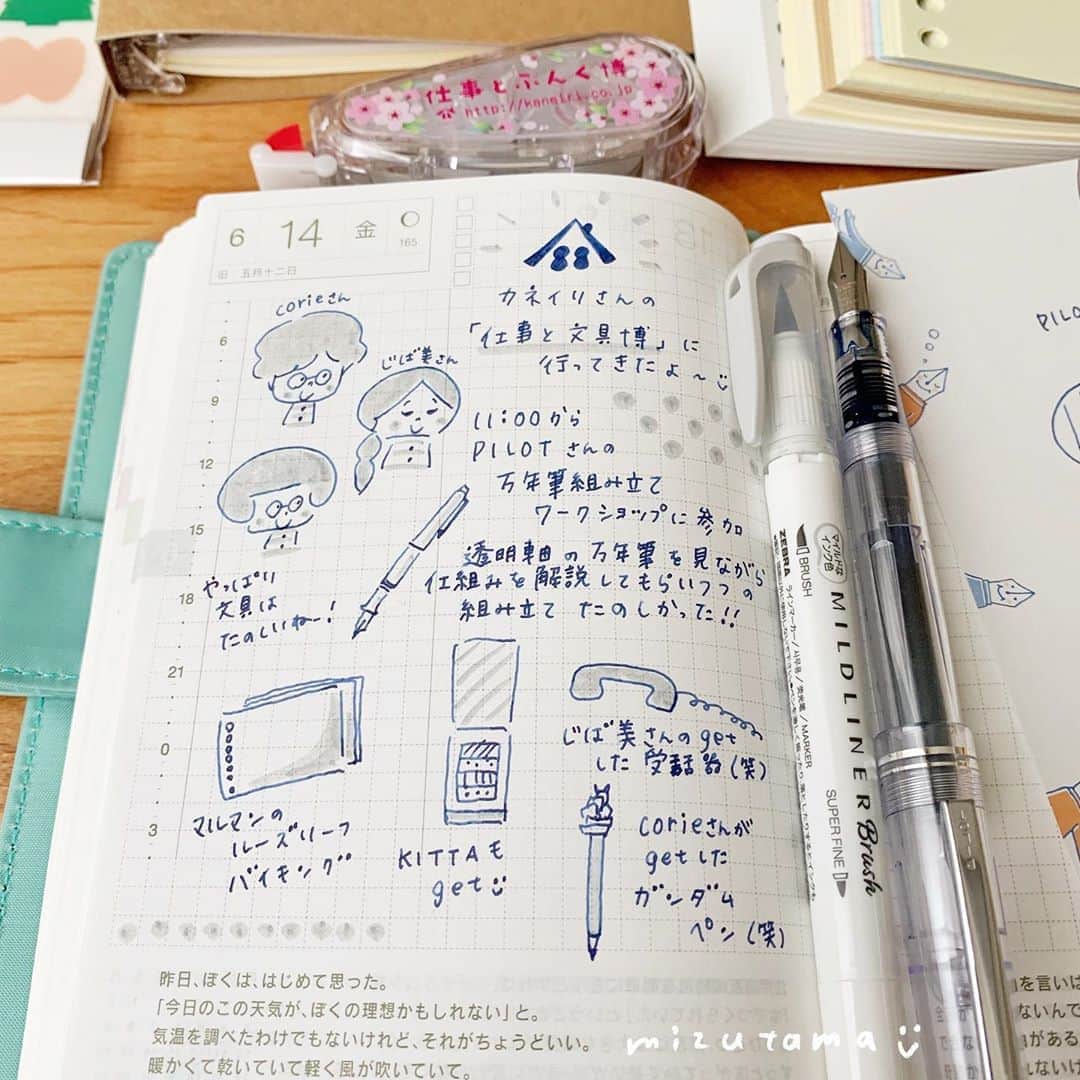 仕事とぶんぐ博
http://kaneiri.co.jp
6 14 金
165
旧 五月十二日
6
9
12
15
18
21
0
3
corieさん
じば美さん
カネイリさんの
「仕事と文具博」に
行ってきたよ〜
11:00から
PILOTさんの
万年筆組み立て
ワークショップに参加
透明軸の万年筆を見ながら
仕組みを解説してもらいつつの
組み立て たのしかった!!
やっぱり
文具は
たのしいねー!
マルマンの
ルーズリーフ
バイキング
KITTAも
get
じば美さんのget
した受話器(笑)
corieさんが
getした
ガンダム
ペン(笑)
昨日、ぼくは、はじめて思った。
「今日のこの天気が、ぼくの理想かもしれない」と。
気温を調べたわけでもないけれど、それがちょうどいい。
暖かくて乾いていて軽く風が吹いていて。
mizutama
ZEBRA
BRUSH
マイルドな
インク色
MILDLINER Brush
SUPER FINE
PILOT
を言いは